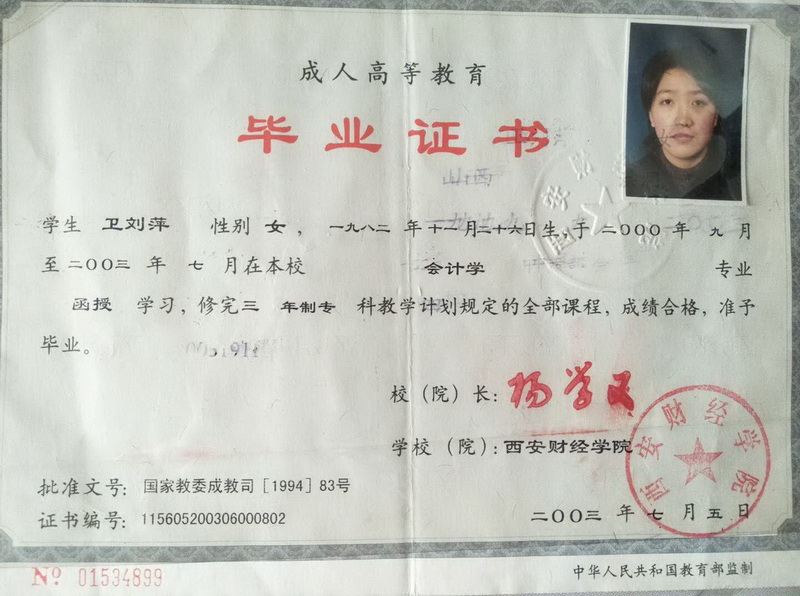 成人高等教育
毕业证书
学生 卫刘萍 性别 女，一九八二 年十一月二十六日生，于 二〇〇〇 年 九 月
至 二〇〇三 年 七 月在本校 会计学 专业
函授 学习，修完三 年制专 科教学计划规定的全部课程，成绩合格，准予
毕业。
校（院）长：杨学义
学校（院）：西安财经学院
西安财经学院
批准文号：国家教委成教司［1994］83号
证书编号：115605200306000802
二〇〇三 年 七 月 五 日
№ 01534899
中华人民共和国教育部监制